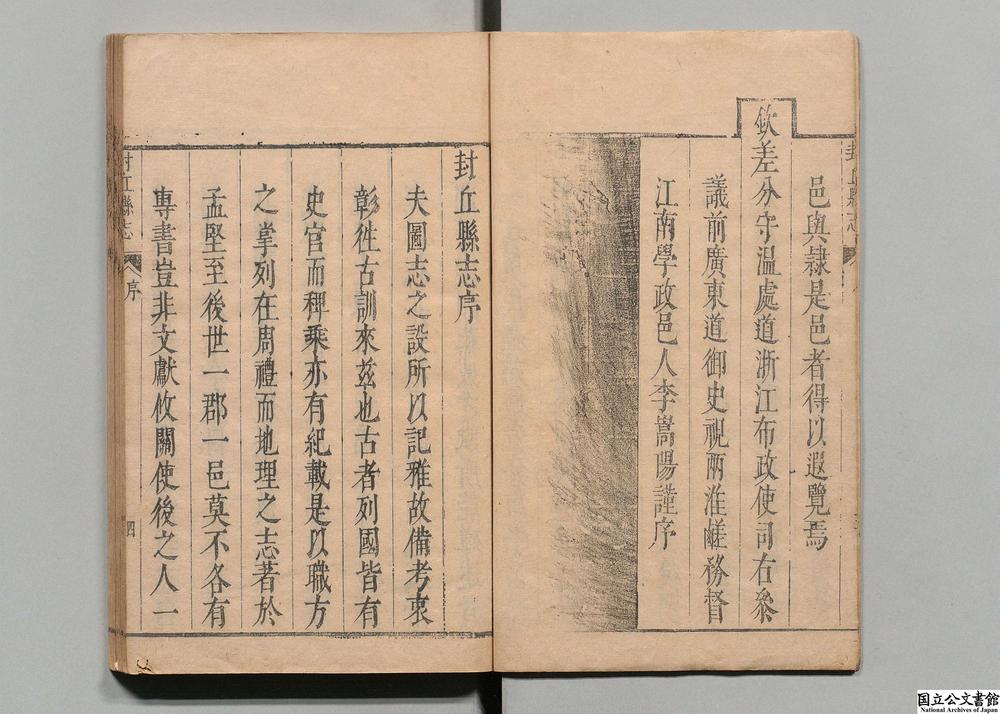 封丘縣志
邑與隷是邑者得以遐覽焉
欽差分守温處道浙江布政使司右叅
議前廣東道御史視兩淮鹺務督
江南學政邑人李嵩陽謹序
封丘縣志序
夫圖志之設所以記雅故備考衷
彰徃古訓來茲也古者列國皆有
史官而稗乘亦有紀載是以職方
之掌列在周禮而地理之志著於
孟堅至後世一郡一邑莫不各有
專書豈非文獻攸關使後之人一
封丘縣志
序
四
国立公文書館
National Archives of Japan